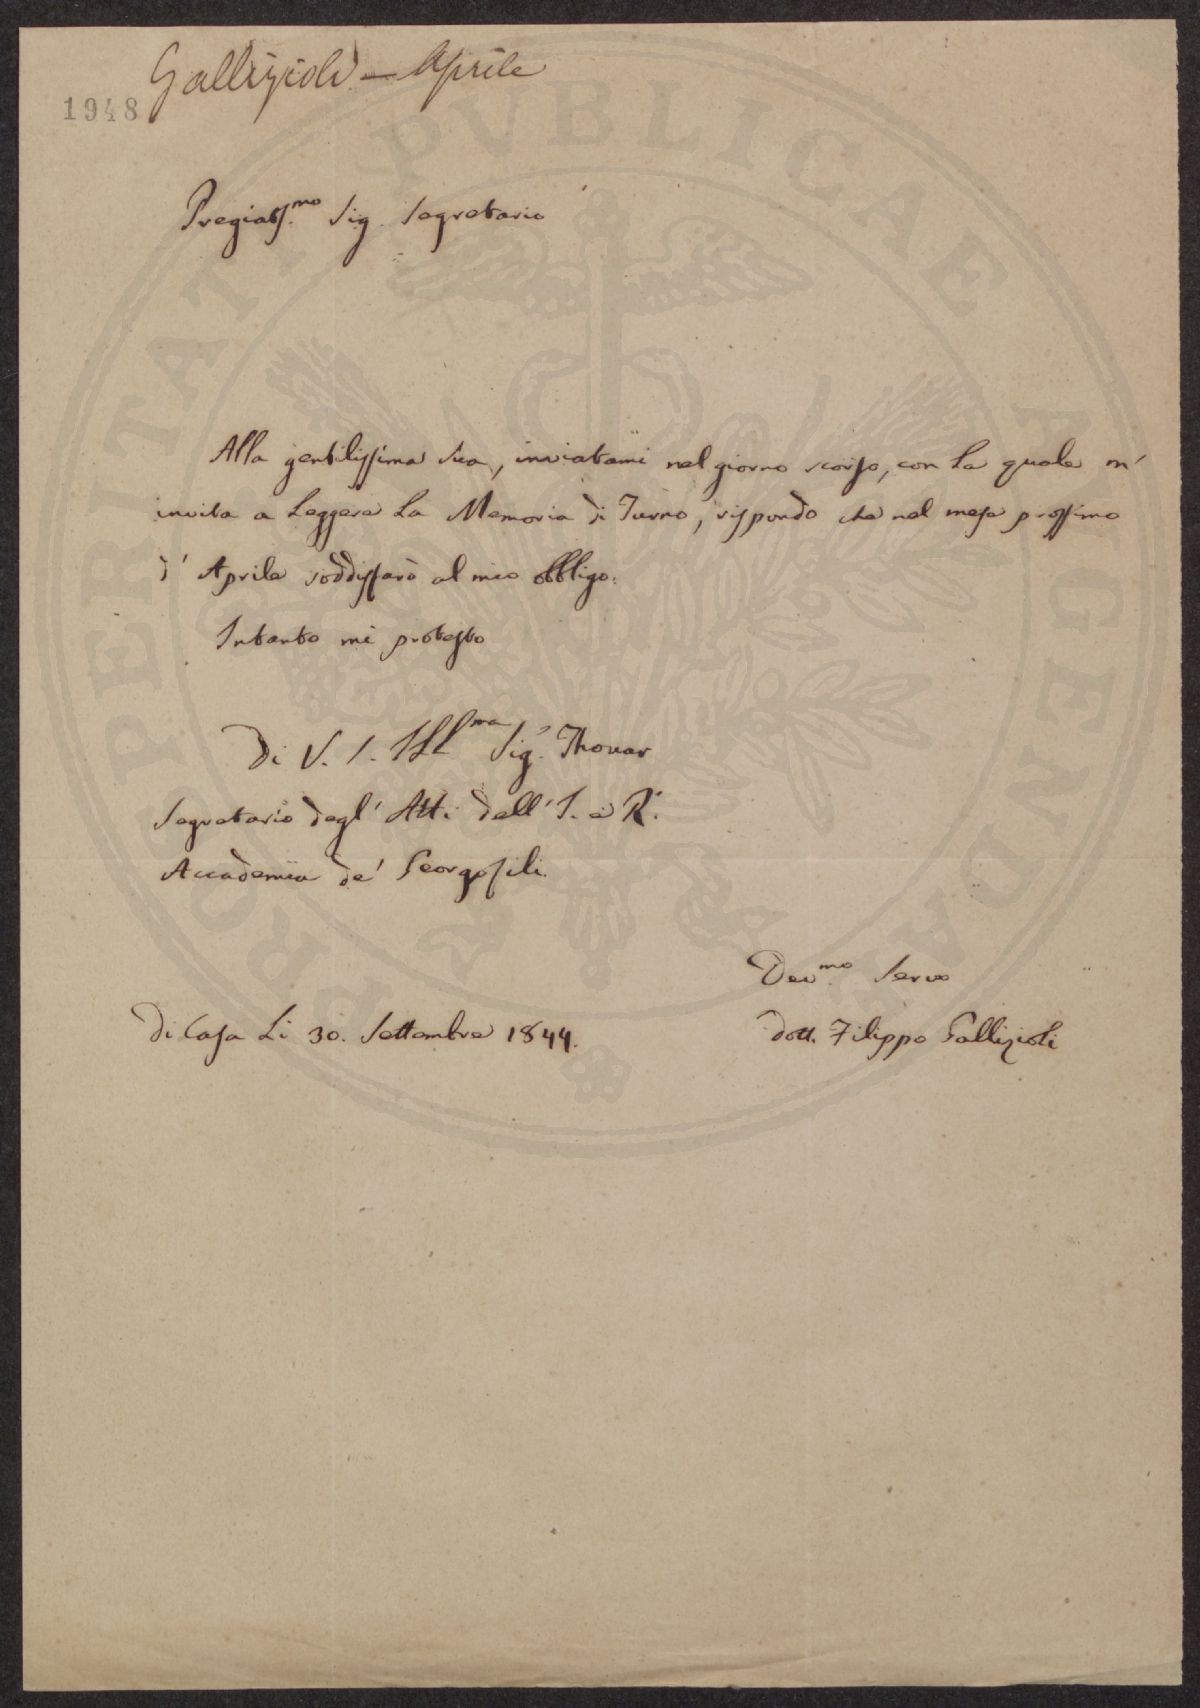 Gallizioli - Aprile
1948
Pregiatss.mo Sig. Segretario
Alla gentilissima sua, inviatami nel giorno scorso, con la quale m'
invita a Leggere La Memoria di Turno, rispondo che nel mese prossimo
d' Aprile soddisfarò al mio obbligo.
Intanto mi protesto
Di V. S. Ill.ma Sig.r Thouar
Segretario degl' Atti dell' I. e R.
Accademia de' Georgofili.
Dev.mo Servo
Di Casa Li 30. Settembre 1844.
dott. Filippo Gallizioli
PROSPERITATI PVBLICAE AVGENDAE